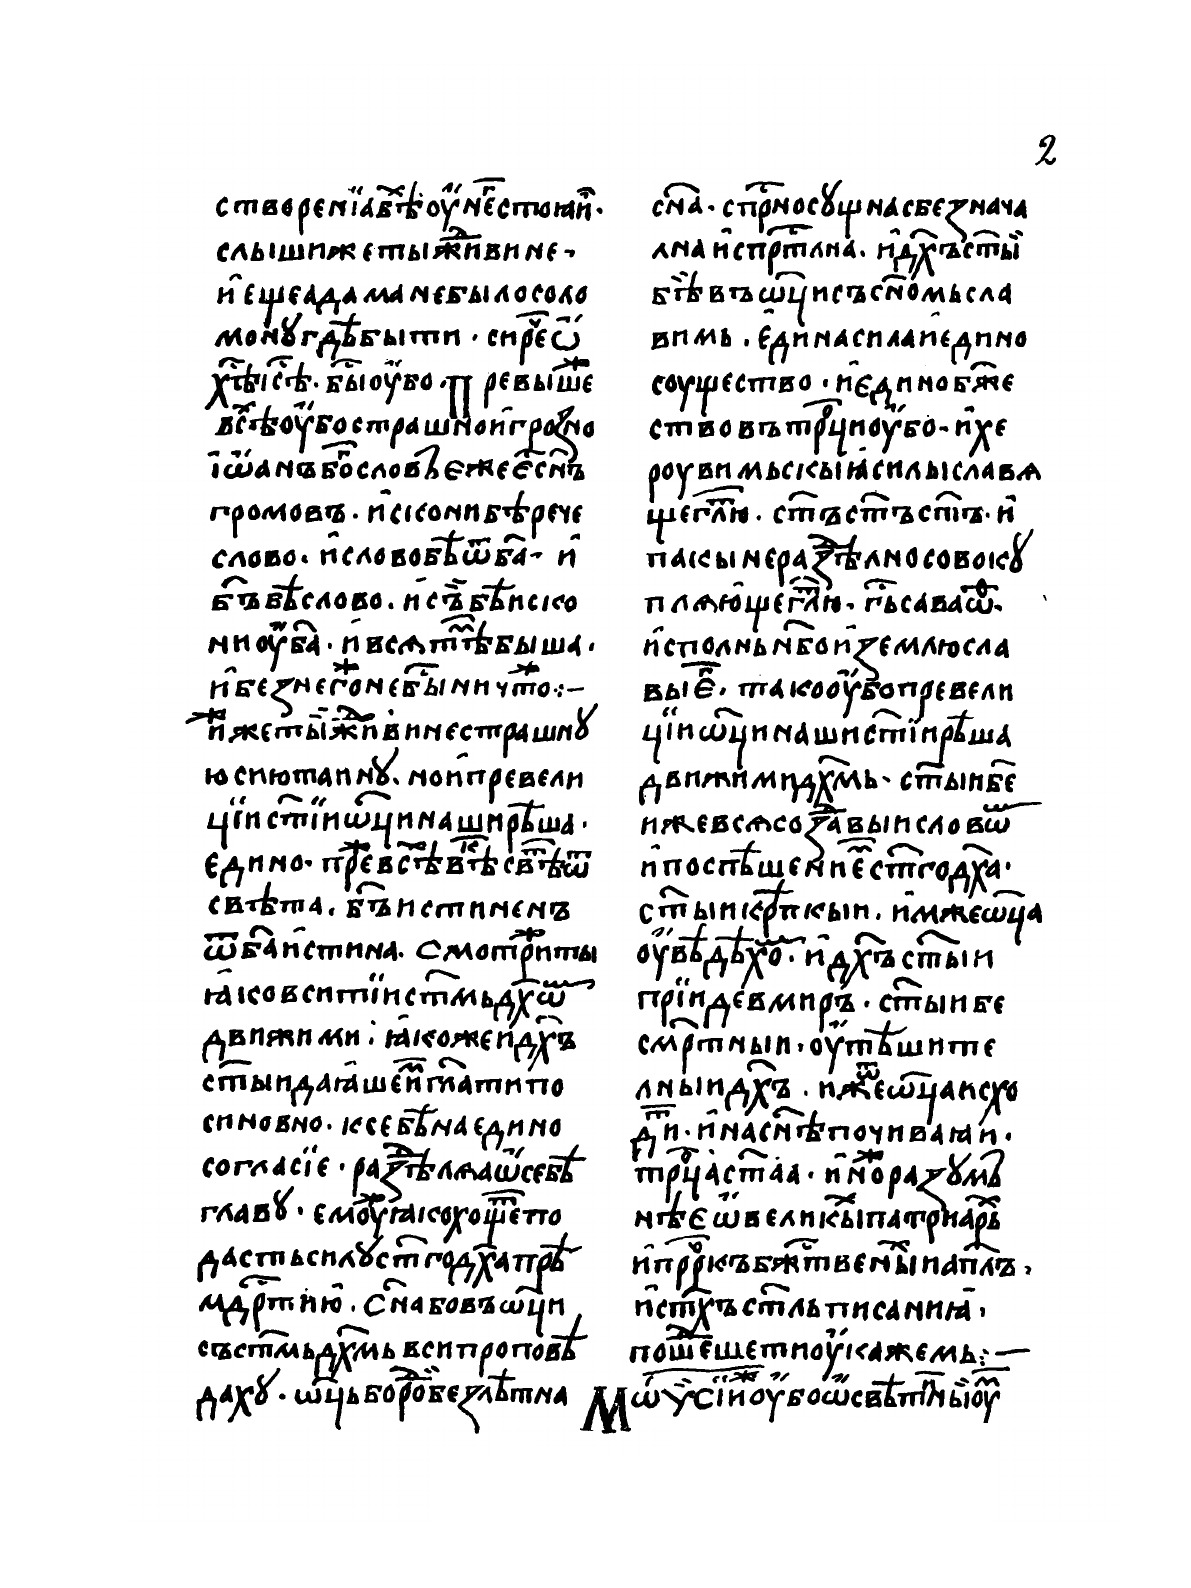 2
створенїа бж҃ѣ оу҆ не҆стоꙗн҆.
слышиже ты жи҆дви не-
и҆ еще адама небыло соло
монꙋ гдѣ быти. сирѣ ѿ
хт҃ѣ іс҃ѣ. бы́ оу҆бо. превыше
всѣ оу҆бо страшно и҆ грозно
і҆ѡ҆анъ бг҃ословъ єже є҆ сн҃ъ
громовъ. и҆скони бѣ рече
слово. и҆ слово бѣ ѿ бг҃а- и҆
бг҃ъ бѣ слово. и҆ съ бѣ иско
ни оу҆ бг҃а. и҆ вся тѣ быша.
и҆ без него не бы ничто:-
и҆же ты жи҆дви не страшнꙋ
ю сию таинꙋ. но и҆ превели
цїи ст҃їи ѿц҃и наши рѣша.
едино. преж всѣ вѣкъ свѣтъ ѿ
свѣта. бг҃ъ истиненъ
ѿ бг҃а и҆стина. смотри ж ты
ꙗ҆ко вси тїи ст҃мь дх҃ѡм
движими. ꙗ҆коже и дх҃ъ
ст҃ыи даꙗ҆ше и҆м гл҃ати по
синовно. к себѣ на едино
согласїе. раздѣляа ѿ себѣ
главꙋ. емоу҆ж ꙗко хощет по
дасть силꙋ ст҃го дх҃а прѣ
мдр҃тию҆. сн҃а бо въ ѿц҃и
съ ст҃мь дх҃мь вси проповѣ
дахꙋ. ѿц҃ь бо роди безлѣтна
сн҃а. спр҃носꙋщна с безнача
лна и҆ спр҃тлна. и҆ дх҃ъ ст҃ыи
бѣ въ ѿц҃и и съ сн҃омь сла
вимь. є҆дина сила и҆ едино
соущество. и҆ єдино бж҃е
ство въ трц҃и оу҆бо. и҆ хе
роувимьскыꙗ силы славѧ
ще гл҃ю. ст҃ъ ст҃ъ ст҃ъ. и҆
пакы нераздѣлно совокꙋ
пляю҆ще гл҃ю. гь҃ саваѡф.
и҆сполнь нб҃о и҆ землю сла
вы є҆г. тако оу҆бо превели
цїи ѿц҃и наши ст҃їи рѣша
движими дх҃мь. ст҃ыи бж҃е
иже вся создавыи словѡм
и҆ поспѣшение҆м ст҃го дх҃а.
ст҃ыи крѣпкыи. и҆мже ѿц҃а
оу҆вѣдѣхом. и҆ дх҃ъ ст҃ыи
прїиде в миръ. ст҃ыи бе
смр҃тныи. оу҆тѣшите
лныи дх҃ъ. иже ѿ ѿц҃а исхо
дит. и҆ на сн҃ѣ почиваꙗи.
трц҃а ст҃аа. и҆ но разꙋмѣ
нѣ є ѿ великых патриарх
и҆ прр҃къ бж҃твеных и апл҃ъ.
и҆ ст҃хъ ст҃ль писанию҆.
пошедше тноу҆ кажемь:-
Мѡѵ҆сїи оу҆бо ѿ свѣтилныи оу҆